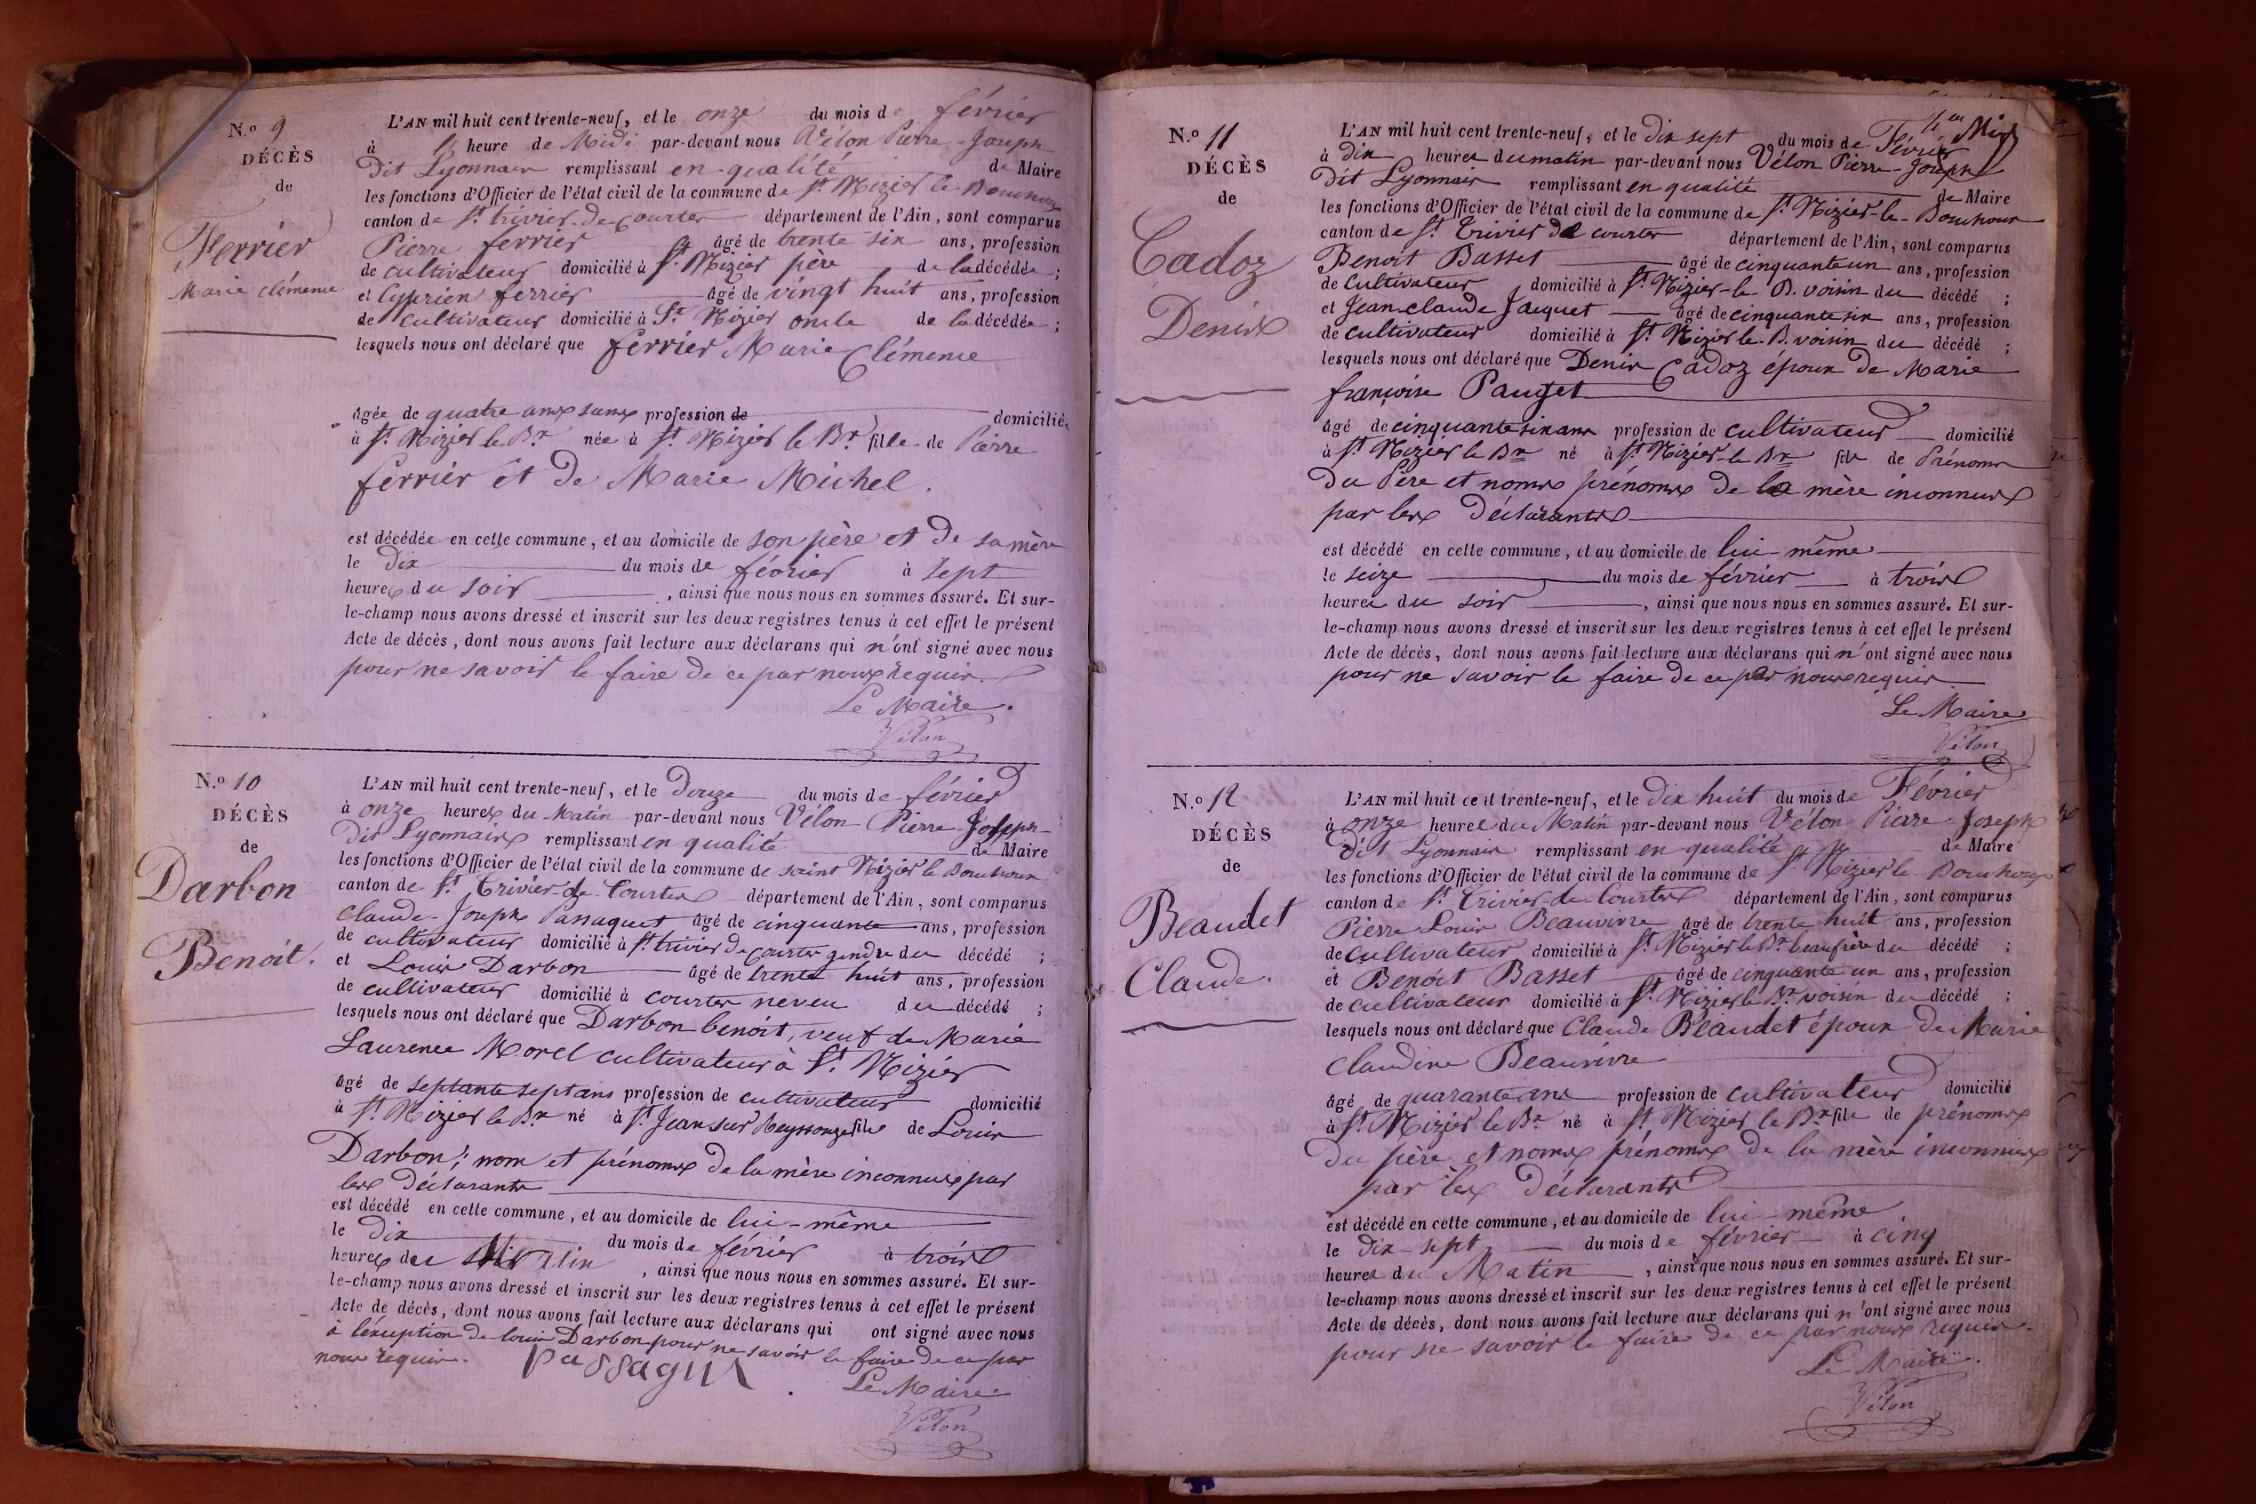 N.º 9
DÉCÈS
de
Ferrier
Marie clémence
L'AN mil huit cent trente-neuf, et le onze du mois de février
à heure de Midi par-devant nous Vélon Pierre-Joseph
dit Lyonnais remplissant en qualité de Maire
les fonctions d'Officier de l'état civil de la commune de St Nizier le Bouchoux
canton de St trivier de Courtes département de l'Ain, sont comparus
Pierre ferrier âgé de trente six ans, profession
de cultivateur domicilié à St Nizier père de la décédée;
et Cyprien ferrier âgé de vingt huit ans, profession
de cultivateur domicilié à St Nizier oncle de la décédée;
lesquels nous ont déclaré que ferrier Marie Clémence
âgée de quatre ans sans profession de domiciliée
à St Nizier le Bx née à St Nizier le Bx fille de Pierre
ferrier et de Marie Michel.
est décédée en cette commune, et au domicile de son père et de sa mère
le dix du mois de février à sept
heures du soir, ainsi que nous nous en sommes assuré. Et sur-
le-champ nous avons dressé et inscrit sur les deux registres tenus à cet effet le présent
Acte de décès, dont nous avons fait lecture aux déclarans qui n'ont signé avec nous
pour ne savoir le faire de ce par nous requis.
Le Maire.
Vélon
N.º 10
DÉCÈS
de
Darbon
Benoit.
L'AN mil huit cent trente-neuf, et le douze du mois de février
à onze heures du Matin par-devant nous Vélon Pierre-Joseph
dit Lyonnais remplissant en qualité de Maire
les fonctions d'Officier de l'état civil de la commune de saint Nizier le Bouchoux
canton de St Trivier de Courtes département de l'Ain, sont comparus
Claude-Joseph Passaquet âgé de cinquante ans, profession
de cultivateur domicilié à St trivier de Courtes gendre du décédé;
et Louis Darbon âgé de trente huit ans, profession
de cultivateur domicilié à Courtes neveu du décédé;
lesquels nous ont déclaré que Darbon benoit, veuf de Marie
Laurence Morel cultivateur à St Nizier
âgé de septante sept ans profession de cultivateur domicilié
à St Nizier le Bx né à St Jean sur Reyssouze fils de Louis
Darbon; nom et prénoms de la mère inconnus par
les déclarants
est décédé en cette commune, et au domicile de lui-même
le dix du mois de février à trois
heures du Matin, ainsi que nous nous en sommes assuré. Et sur-
le-champ nous avons dressé et inscrit sur les deux registres tenus à cet effet le présent
Acte de décès, dont nous avons fait lecture aux déclarans qui ont signé avec nous
à l'éxception de louis Darbon pour ne savoir le faire de ce par
nous requis.
Le Maire
Vélon
N.º 11
DÉCÈS
de
Cadoz
Denis
L'AN mil huit cent trente-neuf, et le dix sept du mois de Février
à dix heures du matin par-devant nous Vélon Pierre-Joseph
dit Lyonnais remplissant en qualité de Maire
les fonctions d'Officier de l'état civil de la commune de St Nizier-le-Bouchoux
canton de St Trivier de courtes département de l'Ain, sont comparus
Benoit Basset âgé de cinquante un ans, profession
de cultivateur domicilié à St Nizier-le B. voisin du décédé;
et Jean-claude Jacquet âgé de cinquante six ans, profession
de cultivateur domicilié à St Nizier le-B. voisin du décédé;
lesquels nous ont déclaré que Denis Cadoz époux de Marie
françoise Pauget
âgé de cinquante six ans profession de cultivateur domicilié
à St Nizier le Bx né à St Nizier-le Bx fils de Prénoms
du Père et noms prénoms de la mère inconnus
par les déclarants
est décédé en cette commune, et au domicile de lui-même
le seize du mois de février à trois
heures du soir, ainsi que nous nous en sommes assuré. Et sur-
le-champ nous avons dressé et inscrit sur les deux registres tenus à cet effet le présent
Acte de décès, dont nous avons fait lecture aux déclarans qui n'ont signé avec nous
pour ne savoir le faire de ce par nous requis
Le Maire
Vélon
N.º 12
DÉCÈS
de
Beaudet
Claude.
L'AN mil huit cent trente-neuf, et le dix huit du mois de Février
à onze heures du Matin par-devant nous Vélon Pierre-Joseph
dit Lyonnais remplissant en qualité de Maire
les fonctions d'Officier de l'état civil de la commune de St Nizier le Bouchoux
canton de St Trivier de Courtes département de l'Ain, sont comparus
Pierre Louis Beauvivre âgé de trente huit ans, profession
de cultivateur domicilié à St Nizier le Bx beaufrère du décédé;
et Benoit Basset âgé de cinquante un ans, profession
de cultivateur domicilié à St Nizier le Bx voisin du décédé;
lesquels nous ont déclaré que Claude Beaudet époux de Marie
Claudine Beauvivre
âgé de quarante ans profession de cultivateur domicilié
à St Nizier le Bx né à St Nizier le Bx fils de prénoms
du père et noms prénoms de la mère inconnus
par les déclarants
est décédé en cette commune, et au domicile de lui-même
le dix-sept du mois de février à cinq
heures du Matin, ainsi que nous nous en sommes assuré. Et sur-
le-champ nous avons dressé et inscrit sur les deux registres tenus à cet effet le présent
Acte de décès, dont nous avons fait lecture aux déclarans qui n'ont signé avec nous
pour ne savoir le faire de ce par nous requis.
Le Maire.
Vélon